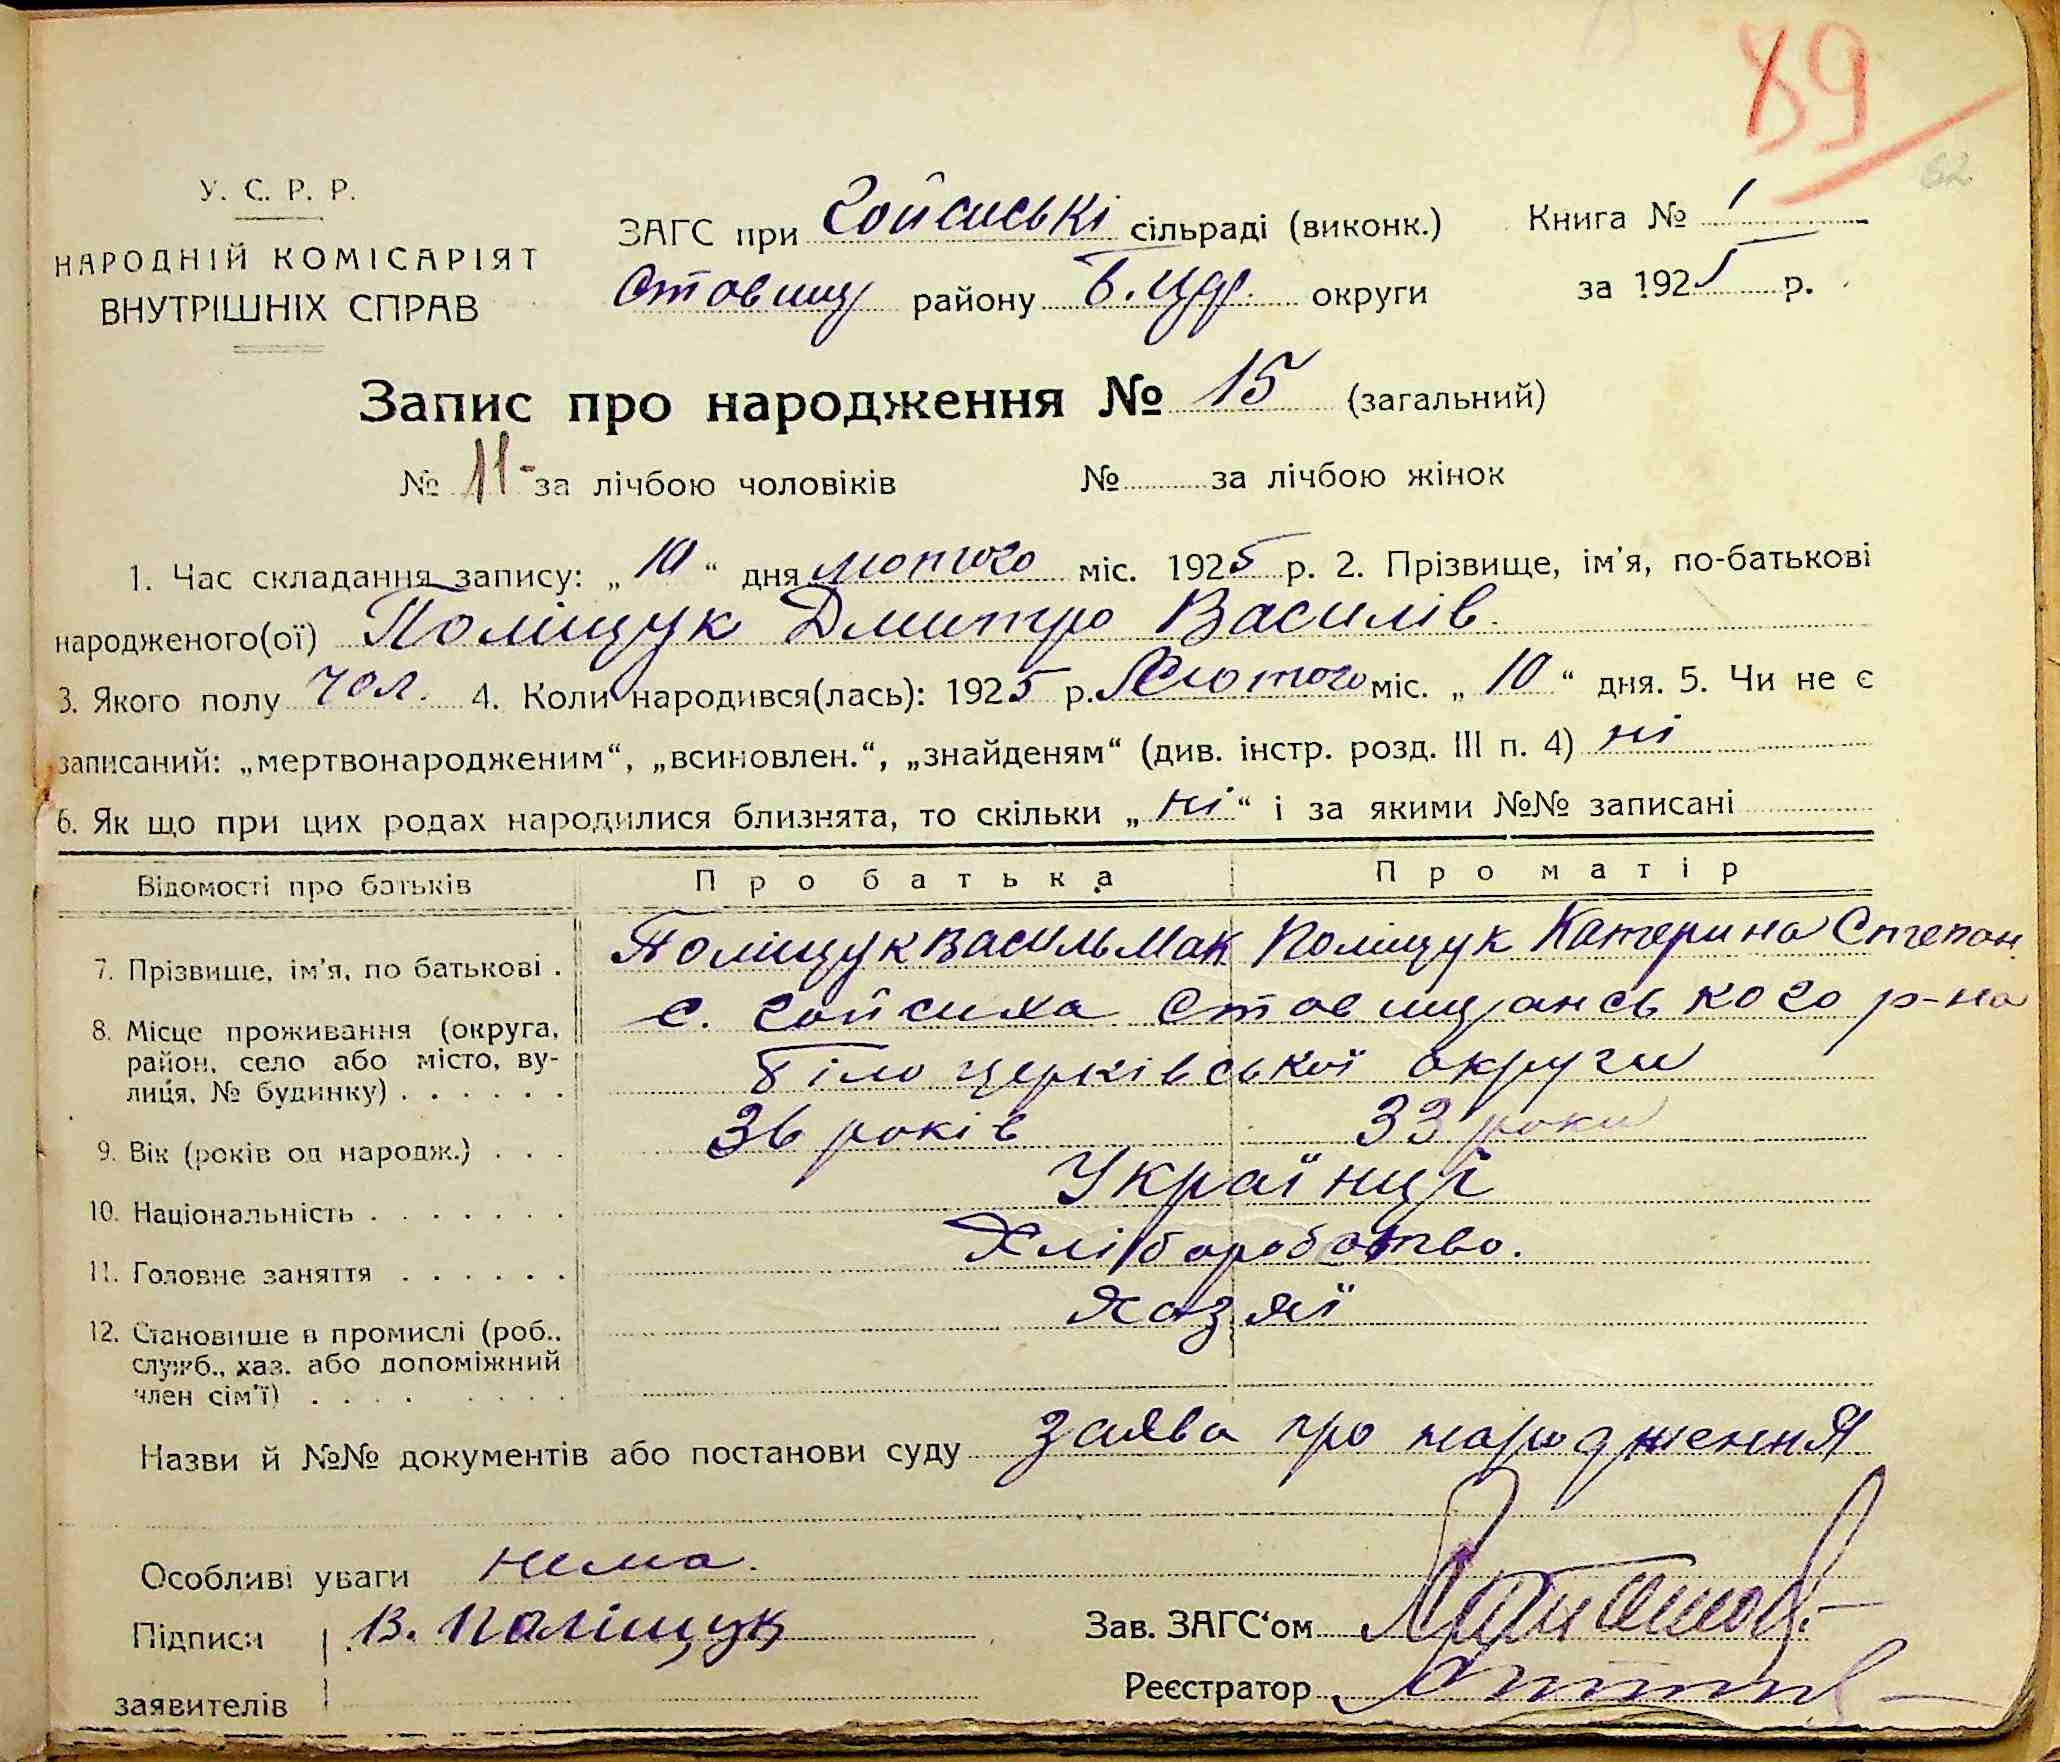 89
62
У. С. Р. Р.
НАРОДНІЙ КОМІСАРІЯТ
ВНУТРІШНІХ СПРАВ
ЗАГС при Гойсиські сільраді (виконк.)
Ставищ району Б. Црк. округи
Книга № 1
за 1925 р.
Запис про народження № 15 (загальний)
№ 11 за лічбою чоловіків № за лічбою жінок
1. Час складання запису: „ 10 “ дня лютого міс. 1925 р. 2. Прізвище, ім'я, по-батькові
народженого(ої) Поліщук Дмитро Василів.
3. Якого полу чол. 4. Коли народився(лась): 1925 р. Лютого міс. „ 10 “ дня. 5. Чи не є
записаний: „мертвонародженим“, „всиновлен.“, „знайденям“ (див. інстр. розд. III п. 4) ні
6. Як що при цих родах народилися близнята, то скільки „ ні “ і за якими №№ записані
Відомості про батьків Про батька Про матір
7. Прізвище, ім'я, по батькові . Поліщук Василь Мак Поліщук Катерина Степан
8. Місце проживання (округа, с. Гойсиха Ставищанського р-на
район, село або місто, ву-
лиця, № будинку) . . . . . . Білоцерківської округи
9. Вік (років од народж.) . . . 36 років 33 роки
10. Національність . . . . . . . Українці
11. Головне заняття . . . . . . Хліборобство.
12. Становище в промислі (роб., Хазяї
служб., хаз. або допоміжний
член сім'ї) . . . . . . . .
Назви й №№ документів або постанови суду заява про народження
Особливі уваги нема.
Підписи В. Поліщук
заявителів
Зав. ЗАГС'ом
Реєстратор